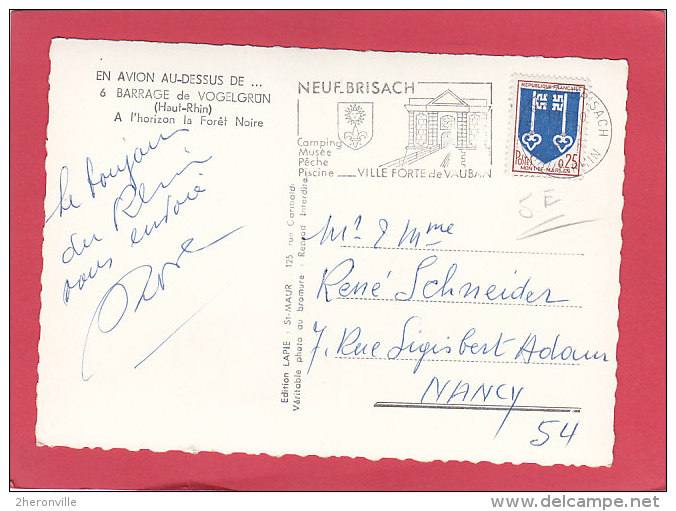 EN AVION AU-DESSUS DE ...
6 BARRAGE de VOGELGRÜN
(Haut-Rhin)
A l'horizon la Forêt Noire
NEUF-BRISACH
Camping
Musée
Pêche
Piscine
VILLE FORTE de VAUBAN
REPUBLIQUE FRANÇAISE
Postes 0,25
MONT-DE-MARSAN
BRISACH
RHIN
5E
Le
du Rhin
vous envoie
Edition LAPIE - St-MAUR 125 rue Garibaldi
Véritable photo au bromure - Reprod Interdite
Mr & Mme
René Schneider
7, Rue Sigisbert Adam
NANCY
54
2heronville
delcampe.net